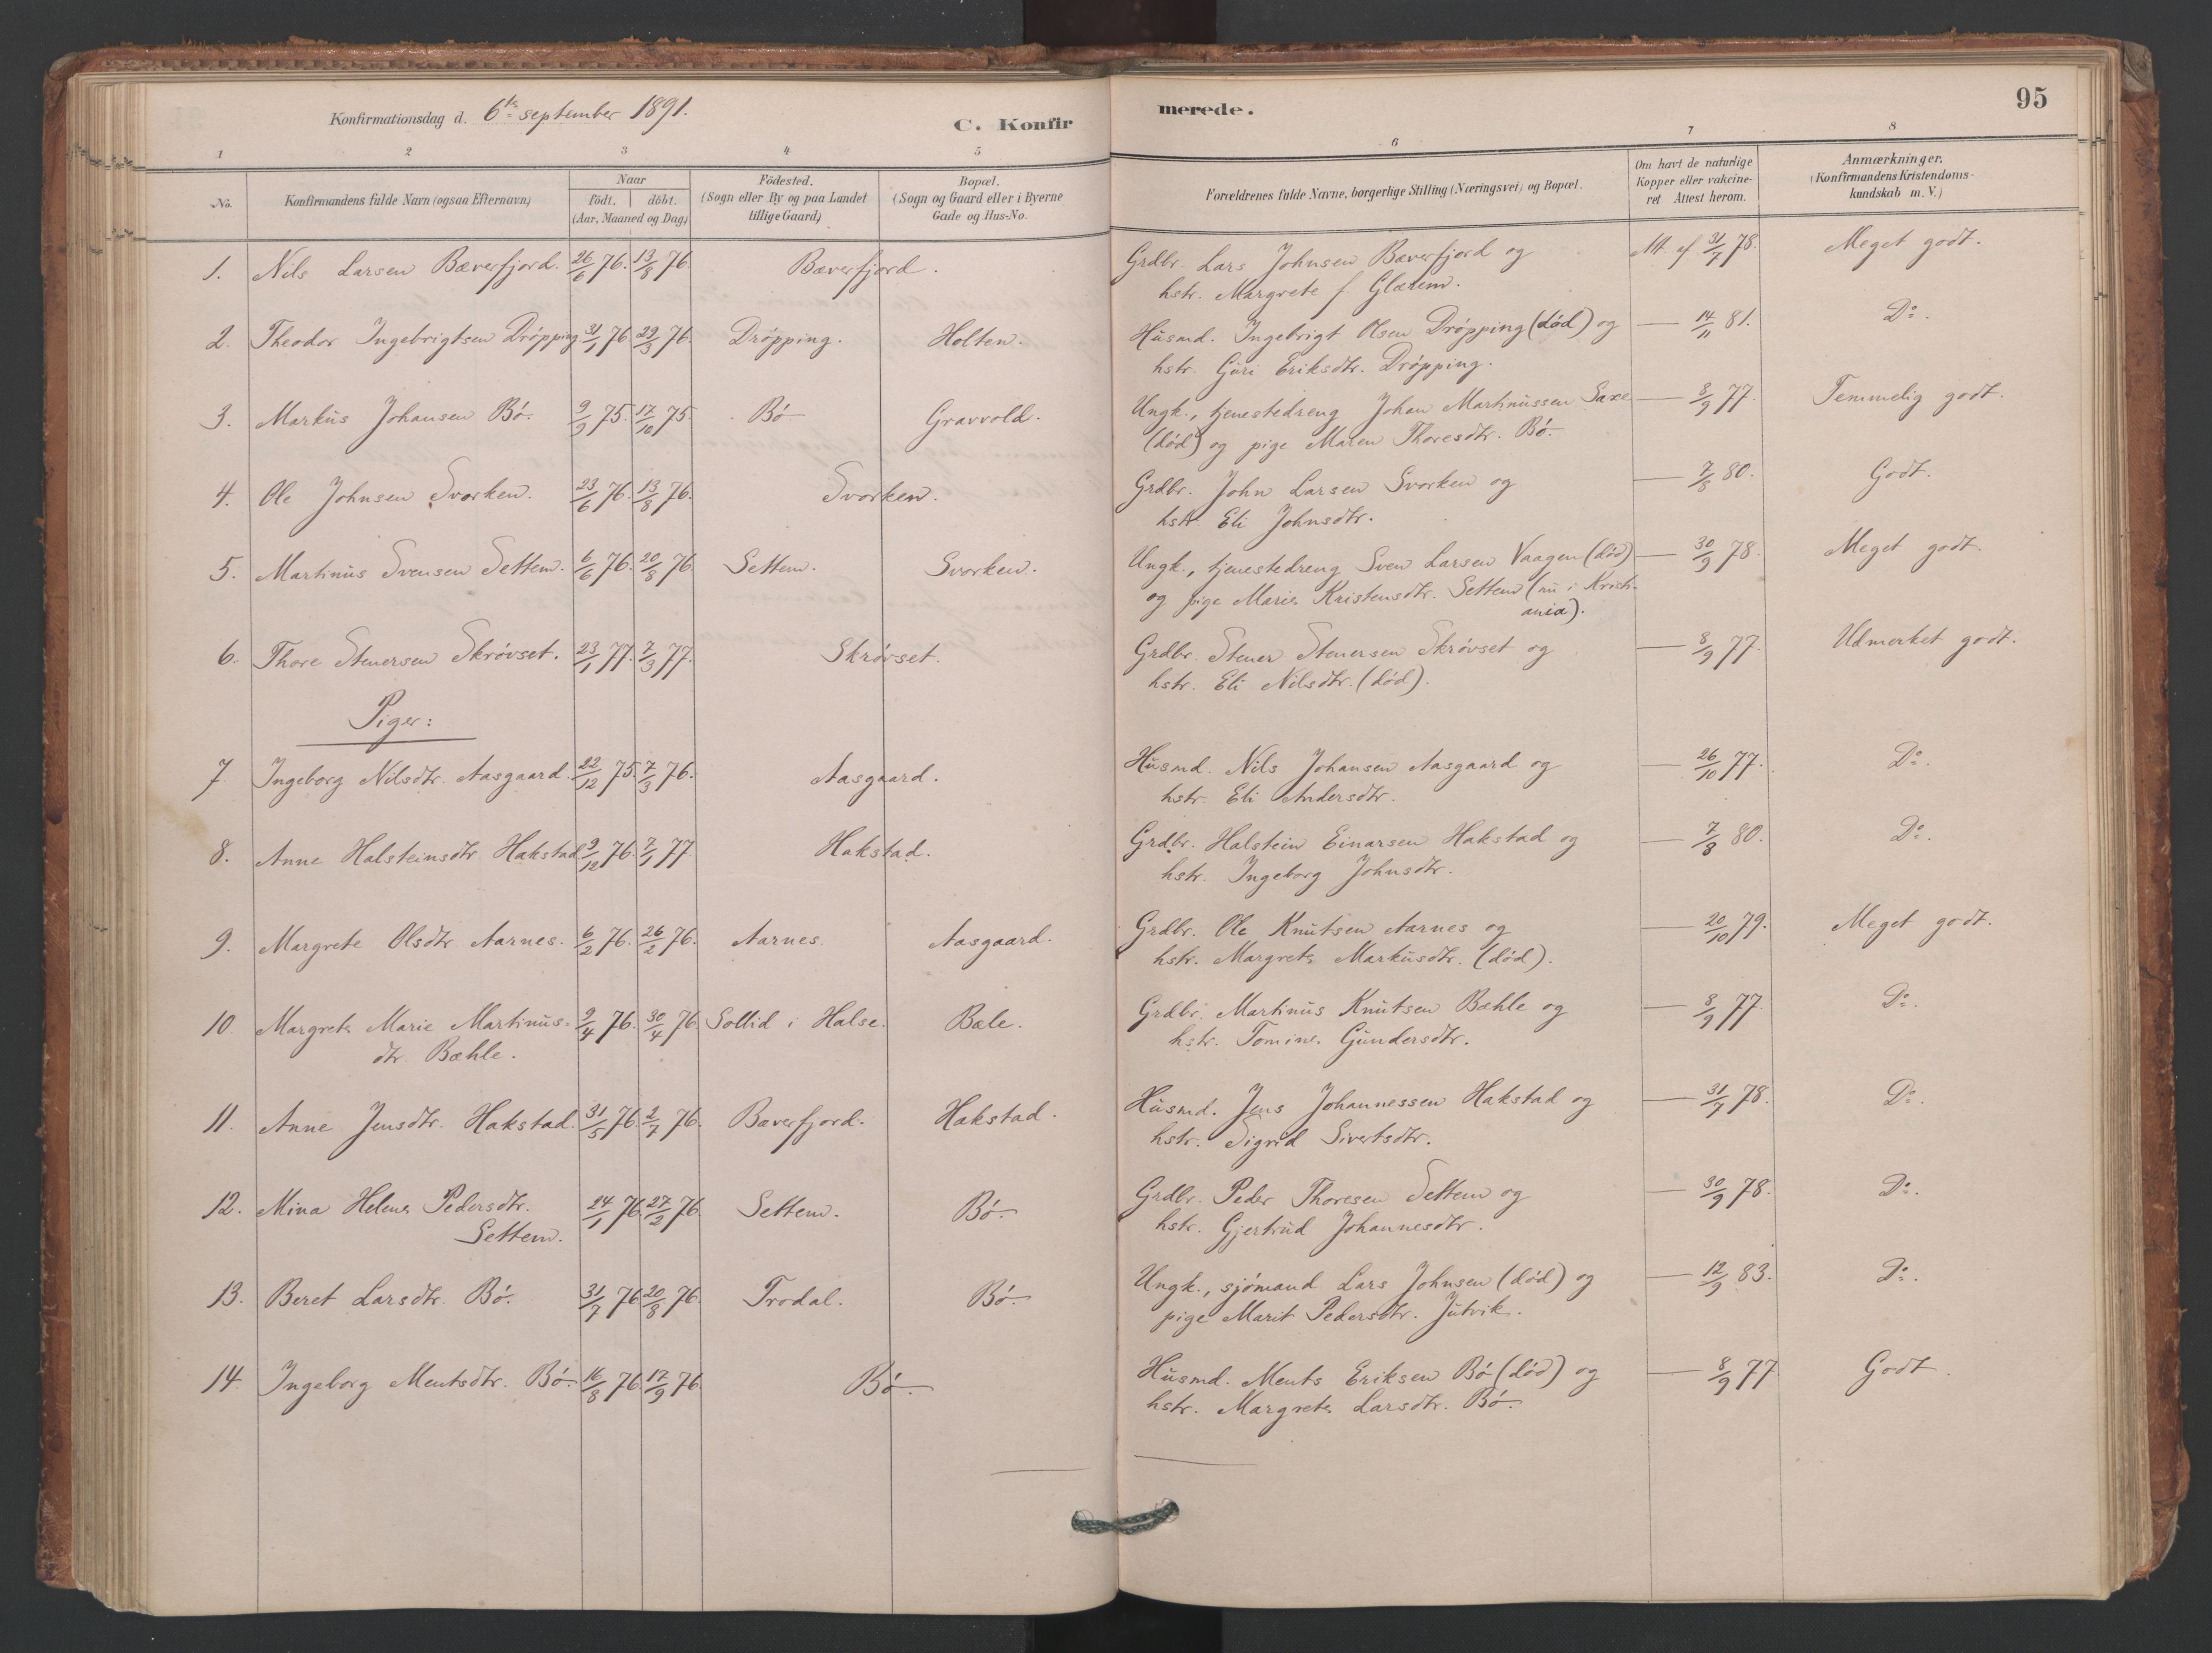 Konfirmationsdag d. 6te september 1891.
C. Konfir
merede.
95
1 2 3 4 5 6 7 8
No.
Konfirmandens fulde Navn (ogsaa Efternavn)
Naar
födt. döbt.
(Aar, Maaned og Dag)
Födested.
(Sogn eller By og paa Landet
tillige Gaard)
Bopæl.
(Sogn og Gaard eller i Byerne
Gade og Hus-No.
Forældrenes fulde Navne, borgerlige Stilling (Næringsvei) og Bopæl.
Om havt de naturlige
Kopper eller vakcine-
ret Attest herom.
Anmærkninger.
(Konfirmandens Kristendoms-
kundskab m. V.)
1. Nils Larsen Bæverfjord. 26/6 76. 13/8 76. Bæverfjord. Grdbr. Lars Johnsen Bæverfjord og Att. af 31/7 78. Meget godt.
hstr. Margrete f. Glærem.
2. Theodor Ingebrigtsen Dröpping 31/1 76 29/3 76. Dröpping. Holten. Husmd. Ingebrigt Olsen Dröpping (död) og — 14/11 81. Do.
hstr. Guri Eriksdtr. Dröpping.
3. Markus Johansen Bö. 9/9 75. 17/10 75. Bö Gravvold. Ungk., tjenestedreng Johan Martinussen Saxe — 8/9 77. Temmelig godt.
(död) og pige Maren Thoresdtr. Bö.
4. Ole Johnsen Svorken. 23/6 76. 13/8 76. Svorken. Grdbr. John Larsen Svorken og — 7/8 80. Godt.
hstr. Eli Johnsdtr.
5. Martinus Svensen Settem. 6/6 76. 20/8 76. Settem. Svorken. Ungk., tjenestedreng Sven Larsen Vaagen (död) — 30/9 78. Meget godt.
og pige Marie Kristensdtr. Settem (nu i Kristi-
ania).
6. Thore Stenersen Skrövset. 23/1 77. 7/3 77. Skrövset. Grdbr. Stener Stenersen Skrövset og — 8/9 77. Udmerket godt.
hstr. Eli Nilsdtr. (död).
Piger:
7. Ingeborg Nilsdtr. Aasgaard. 22/12 75. 7/3 76. Aasgaard. Husmd. Nils Johansen Aasgaard og — 26/10 77. Do.
hstr. Eli Andersdtr.
8. Anne Halsteinsdtr Hakstad 9/12 76. 7/1 77. Hakstad. Grdbr. Halstein Einarsen Hakstad og — 7/8 80. Do.
hstr. Ingeborg Johnsdtr.
9. Margrete Olsdtr Aarnes. 6/2 76. 26/2 76. Aarnes. Aasgaard. Grdbr. Ole Knutsen Aarnes og — 20/10 79. Meget godt.
hstr. Margrete Markusdtr. (död).
10. Margrete Marie Martinus- 9/4 76. 30/4 76. Sollid i Halse. Bæle. Grdbr. Martinus Knutsen Bæhle og — 8/9 77. Do.
dtr. Bæhle. hstr. Tomine Gundersdtr.
11. Anne Jensdtr. Hakstad. 31/5 76. 2/7 76. Bæverfjord. Hakstad. Husmd. Jens Johannessen Hakstad og — 31/7 78. Do.
hstr. Sigrid Sivertsdtr.
12. Mina Helene Pedersdtr. 24/1 76. 27/2 76. Settem. Bö. Grdbr. Peder Thoresen Settem og — 30/9 78. Do.
Settem. hstr. Gjertrud Johannesdtr.
13. Beret Larsdtr. Bö. 31/7 76. 20/8 76. Trodal. Bö. Ungk., sjömand Lars Johnsen (död) og — 12/9 83. Do.
pige Marit Pedersdtr. Jutvik.
14. Ingeborg Mentsdtr. Bö. 16/8 76. 17/9 76. Bö. Husmd. Ments Eriksen Bö (död) og — 8/9 77. Godt.
hstr. Margrete Larsdtr. Bö.